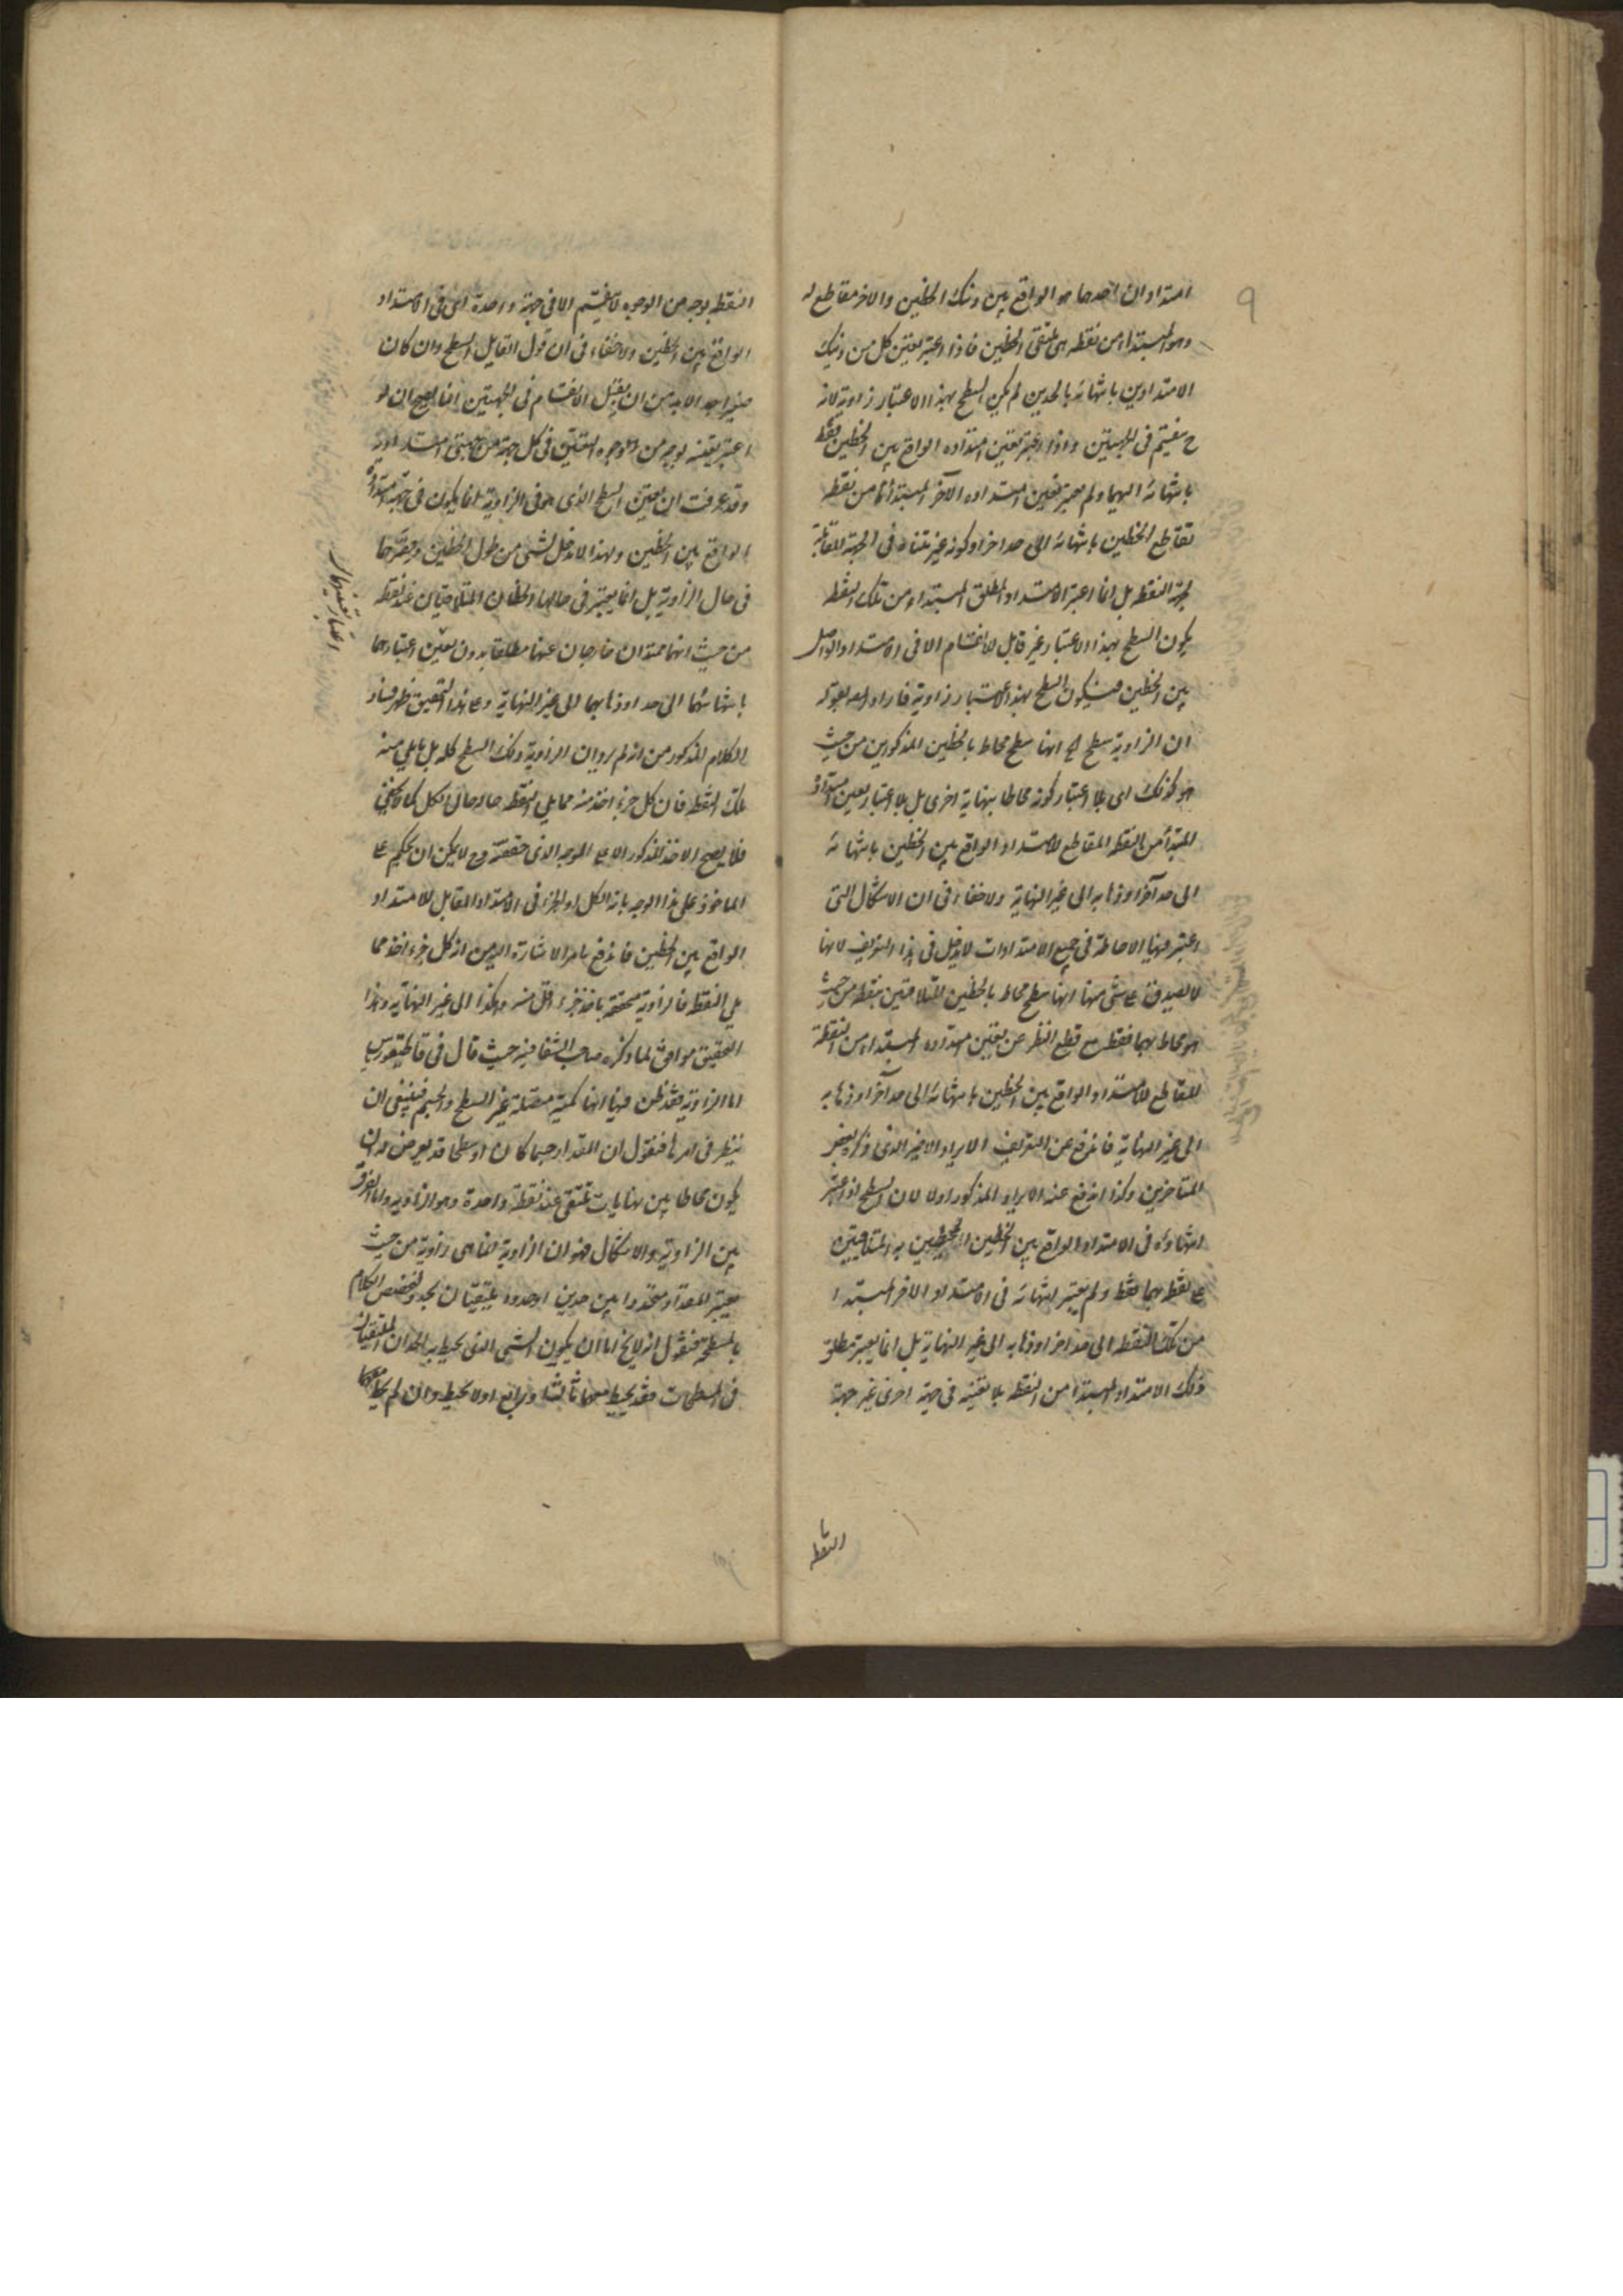 ٩
امتدادان احدهما هو الواقع بين ذينك الخطين والاخر مقاطع له
وهو المبتداء من نقطه هى ملتقى الخطين فاذا اعتبر تعين كل من ذينك
الامتدادين بانتهائه بالحدين لم يكن السطح بهذا الاعتبار زاوية لانه
ح منقسم فى الجهتين واذا اعتبر تعين امتداده الواقع بين الخطين فقط
بانتهائه اليهما ولم يعتبر تعين امتداده الآخر المبتدأ من نقطه
تقاطع الخطين بانتهائه الى حد اخر او كونه غير متناه فى الجهة المقابلة
لجهة النقطه بل انما اعتبر الامتداد المطلق المبتداء من تلك النقطه
يكون السطح بهذا الاعتبار غير قابل للانقسام الا فى الامتداد الواصل
بين الخطين فيكون السطح بهذا الاعتبار زاوية فاراد بقوله
ان الزاوية سطح الخ انها سطح محاط بالخطين المذكورين من حيث
هو كذلك اى بلا اعتبار كونه محاطا بنهاية اخرى بل بلا اعتبار تعين امتداده
المبتدأ من النقطه المقاطع للامتداد الواقع بين الخطين بانتهائه
الى حد آخر او ذهابه الى غير النهاية ولا خفاء فى ان الاشكال التى
اعتبر فيها الاحاطة فى جميع الامتدادات لا يدخل فى هذا التعريف لانها
لا يصدق على شئ منها انها سطح محاط بالخطين المتلاقيين بنقطه من حيث
هو محاط بهما فقط مع قطع النظر عن تعين امتداده المبتداء من النقطة
المقاطع للامتداد الواقع بين الخطين بانتهائه الى حد آخر او ذهابه
الى غير النهاية فاندفع عن التعريف الايراد الاخير الذى ذكره بعض
المتاخرين وكذا اندفع عنه الايراد المذكور اولا لان السطح اذا اعتبر
انتهاؤه فى الامتداد الواقع بين الخطين المحيطين به المتلاقيين
على نقط بهما فقط ولم يعتبر انتهائه فى الامتداد الاخر المبتدا
من تلك النقطه الى حد اخر او ذهابه الى غير النهاية بل انما يعتبر مطلق
ذلك الامتداد المبتدا من النقطه بلا تعينه فى جهة اخرى غير جهة
النقطه
النقطه بوجه من الوجوه لا ينقسم الا فى جهة واحدة اى فى الامتداد
الواقع بين الخطين ولا خفاء فى ان قول القايل السطح وان كان
صغيرا جدا لابد من ان يقبل الانقسام فى الجهتين انما يصح ان لو
اعتبر تعينه بوجه من الوجوه التعين فى كل جهة من جهتى امتداده
وقد عرفت ان تعين السطح الذى هو فى الزاوية انما يكون فى جهة امتداده
الواقع بين الخطين ولهذا لا دخل لشئ من طول الخطين وقصرهما
فى حال الزاوية بل انما يعتبر فى حالها الخطان المتلاقيان عند نقطه
من حيث انهما ممتدان خارجان عنها مطلقا بدون تعين اعتبارهما
بانتهائهما الى حد او ذهابهما الى غير النهاية وعلى هذا التحقيق ظهر فساد
الكلام المذكور من انه لم يروا ان الزاوية ذلك السطح كله بل ما يلى منه
تلك النقطه فان كل جزء اخذ منه مما يلى النقطه حاله حال الكل كما لا يخفى
فلا يصح الاخذ المذكور الا على الوجه الذى حققته وح لا يمكن ان يحكم على
الماخوذ على هذا الوجه بانه الكل او الجزء فى الامتداد المقابل للامتداد
الواقع بين الخطين فاندفع بامر الاشارة اليه من ان كل جزء اخذ مما
يلى النقطه فالزاوية متحققة باخذ جزء اقل منه وهكذا الى غير النهاية وهذا
التحقيق موافق لما ذكره صاحب الشفا فيه حيث قال فى قاطيغورياس
اما الزاوية فقد ظن فيها انها كمية متصلة غير السطح والجسم فينبغى ان
ينظر فى امرها فنقول ان المقدار جسما كان او سطحا قد يعرض له ان
يكون محاطا بين نهايات تلتقى عند نقطة واحدة وهو الزاوية واما الفرق
بين الزاوية والاشكال هو ان الزاوية انما هى زاوية من حيث
يعتبر المقدار متحددا بين حدين او حدود يلتقيان بحد ولنخصص الكلام
بالمسطحة فنقول انه لا يخ اما ان يكون الشئ الذى يحيط به الحدان الملتقيان
فى المسطحات فقد يحيط معهما ثالث او رابع او لا يحيط وان لم يحط معهما